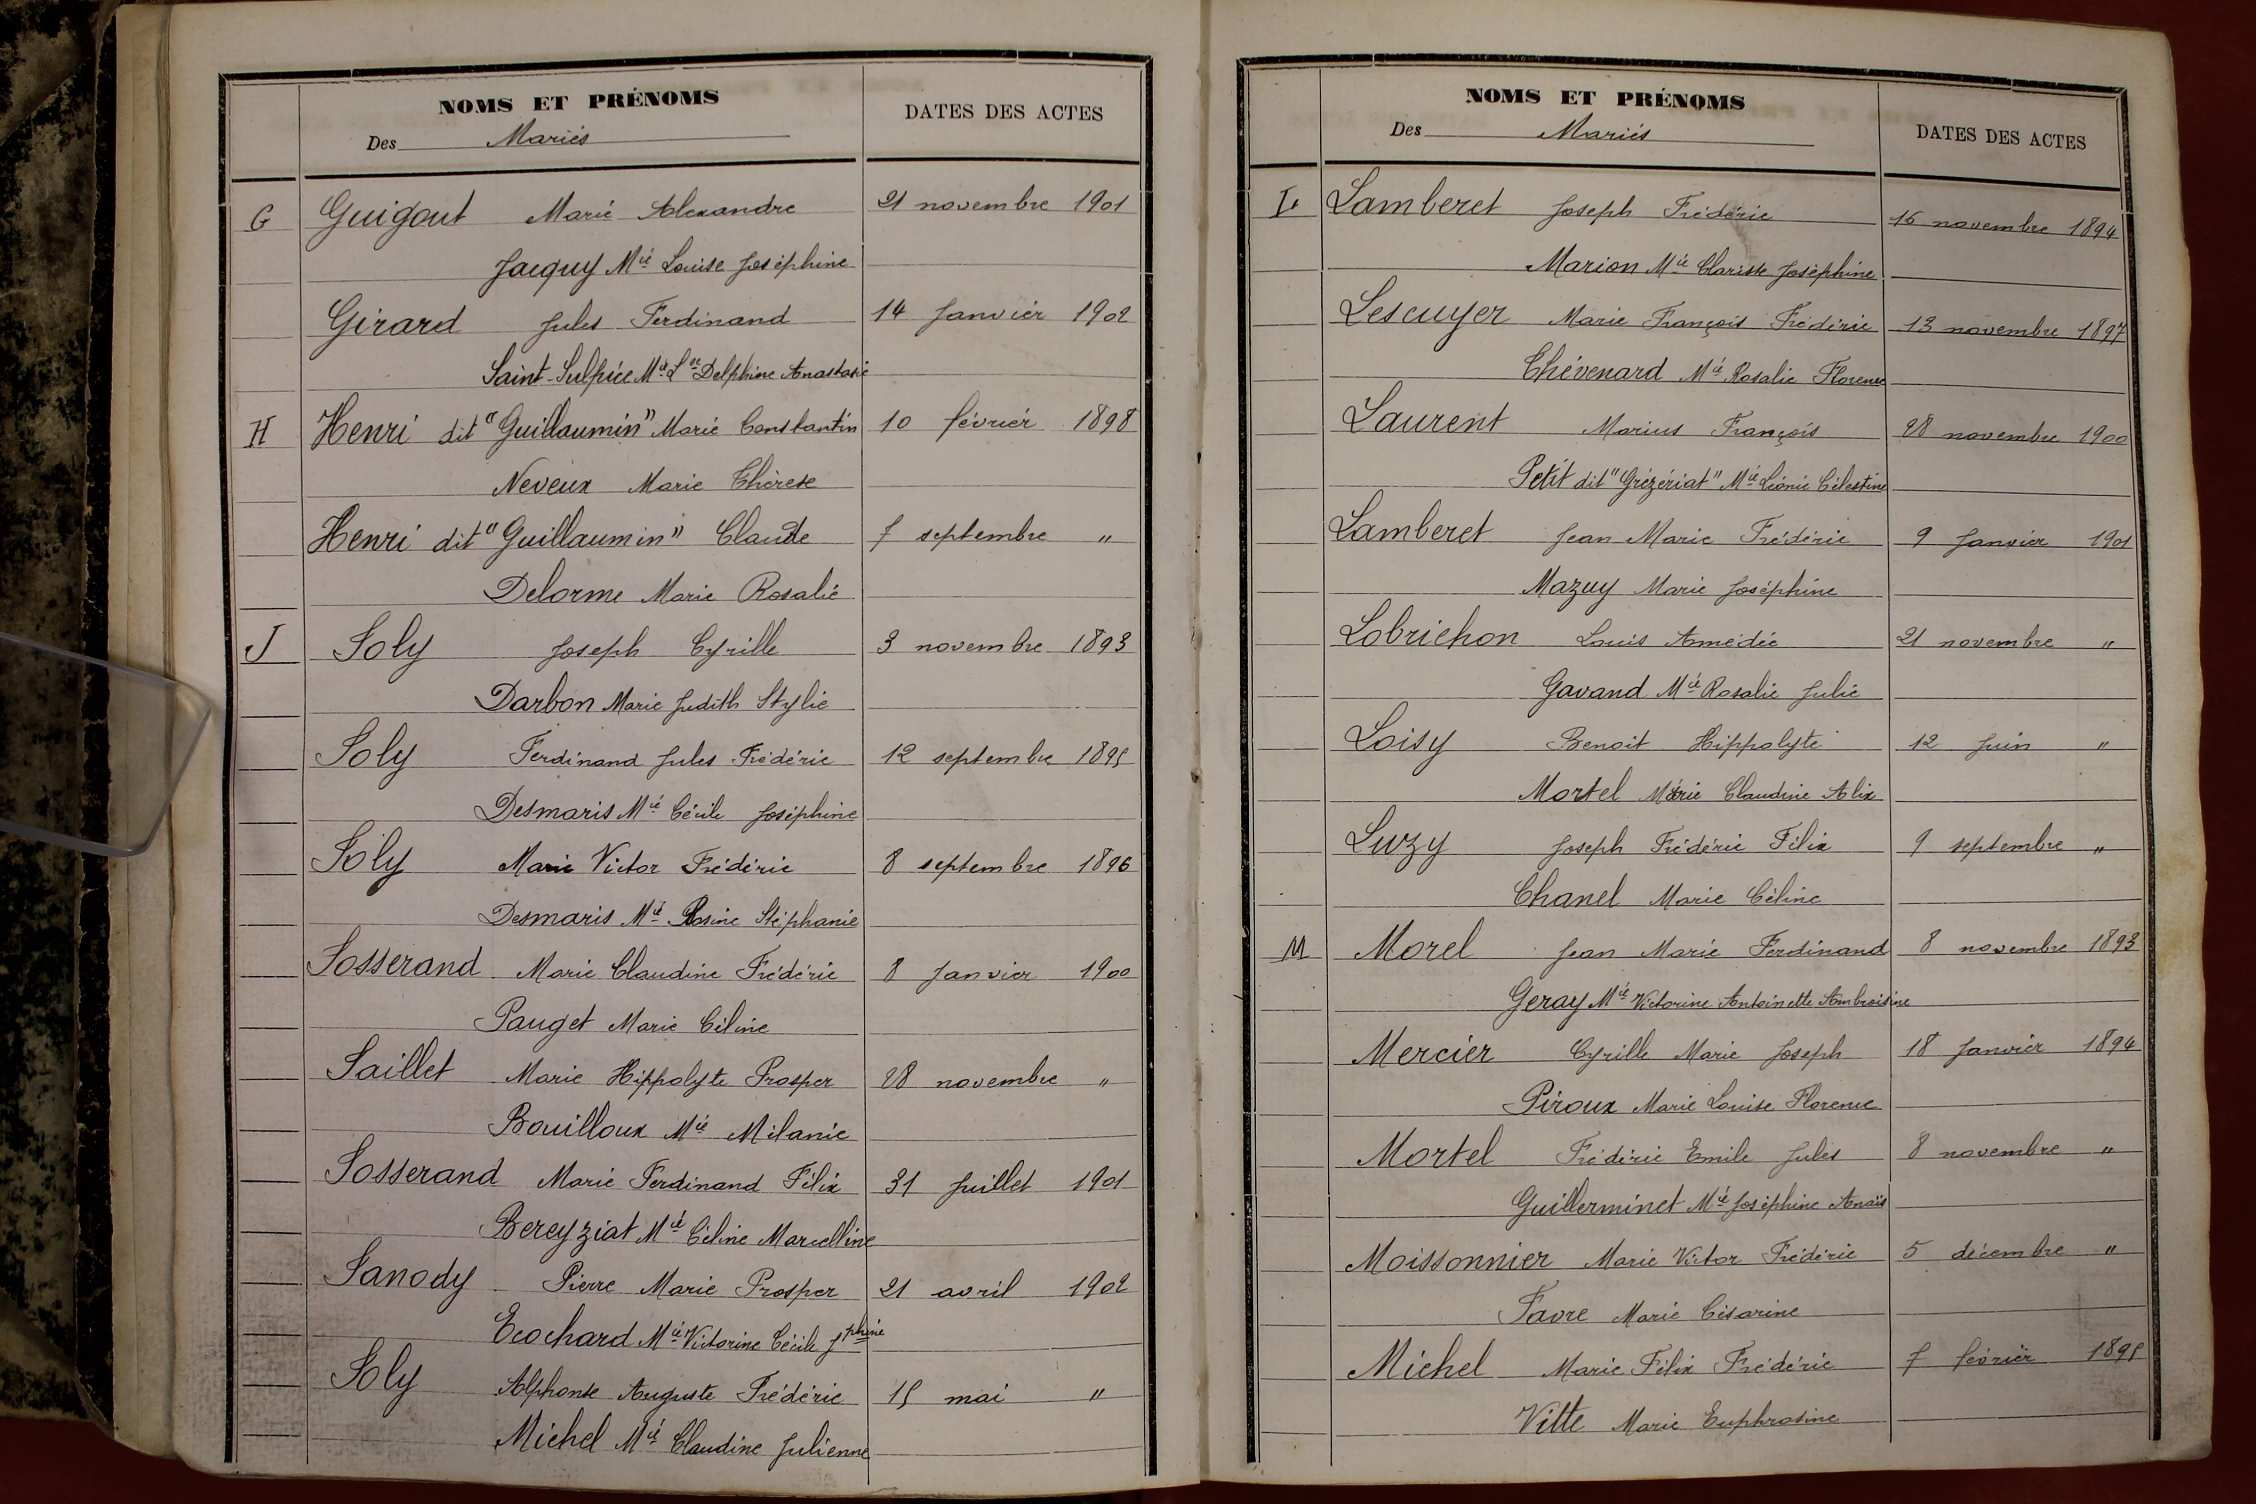 NOMS ET PRÉNOMS
Des Mariés
DATES DES ACTES
G Guigout Marie Alexandre 21 novembre 1901
Jacquy Mie Louise Joséphine
Girard Jules Ferdinand 14 Janvier 1902
Saint-Sulpice Mie Lse Delphine Anastasie
H Henri dit "Guillaumin" Marie Constantin 10 février 1898
Neveux Marie Thérèse
Henri dit "Guillaumin" Claude 7 septembre "
Delorme Marie Rosalie
J Joly Joseph Cyrille 3 novembre 1893
Darbon Marie Judith Stylie
Joly Ferdinand Jules Frédéric 12 septembre 1895
Desmaris Mie Cécile Joséphine
Joly Marie Victor Frédéric 8 septembre 1896
Desmaris Mie Rosine Stéphanie
Josserand Marie Claudine Frédéric 8 Janvier 1900
Pauget Marie Céline
Jaillet Marie Hippolyte Prosper 28 novembre "
Bouilloux Mie Mélanie
Josserand Marie Ferdinand Félix 31 Juillet 1901
Bereyziat Mie Céline Marcelline
Janody Pierre Marie Prosper 21 avril 1902
Ecochard Mie Victorine Cécile Jphine
Joly Alphonse Auguste Frédéric 15 mai "
Michel Mie Claudine Julienne
NOMS ET PRÉNOMS
Des Mariés
DATES DES ACTES
L Lamberet Joseph Frédéric 16 novembre 1894
Marion Mie Clarisse Joséphine
Lescuyer Marie François Frédéric 13 novembre 1897
Chévenard Mie Rosalie Florence
Laurent Marius François 28 novembre 1900
Petit dit "Grézériat" Mie Léonie Célestine
Lamberet Jean Marie Frédéric 9 Janvier 1901
Mazuy Marie Joséphine
Lobrichon Louis Amédée 21 novembre "
Gavand Mie Rosalie Julie
Loisy Benoit Hippolyte 12 Juin "
Mortel Marie Claudine Alix
Luzy Joseph Frédéric Félix 9 septembre "
Chanel Marie Céline
M Morel Jean Marie Ferdinand 8 novembre 1893
Geray Mie Victorine Antoinette Ambroisine
Mercier Cyrille Marie Joseph 18 Janvier 1894
Piroux Marie Louise Florence
Mortel Frédéric Emile Jules 8 novembre "
Guillerminet Mie Joséphine Anaïs
Moissonnier Marie Victor Frédéric 5 décembre "
Favre Marie Césarine
Michel Marie Félix Frédéric 7 février 1895
Vitte Marie Euphrosine